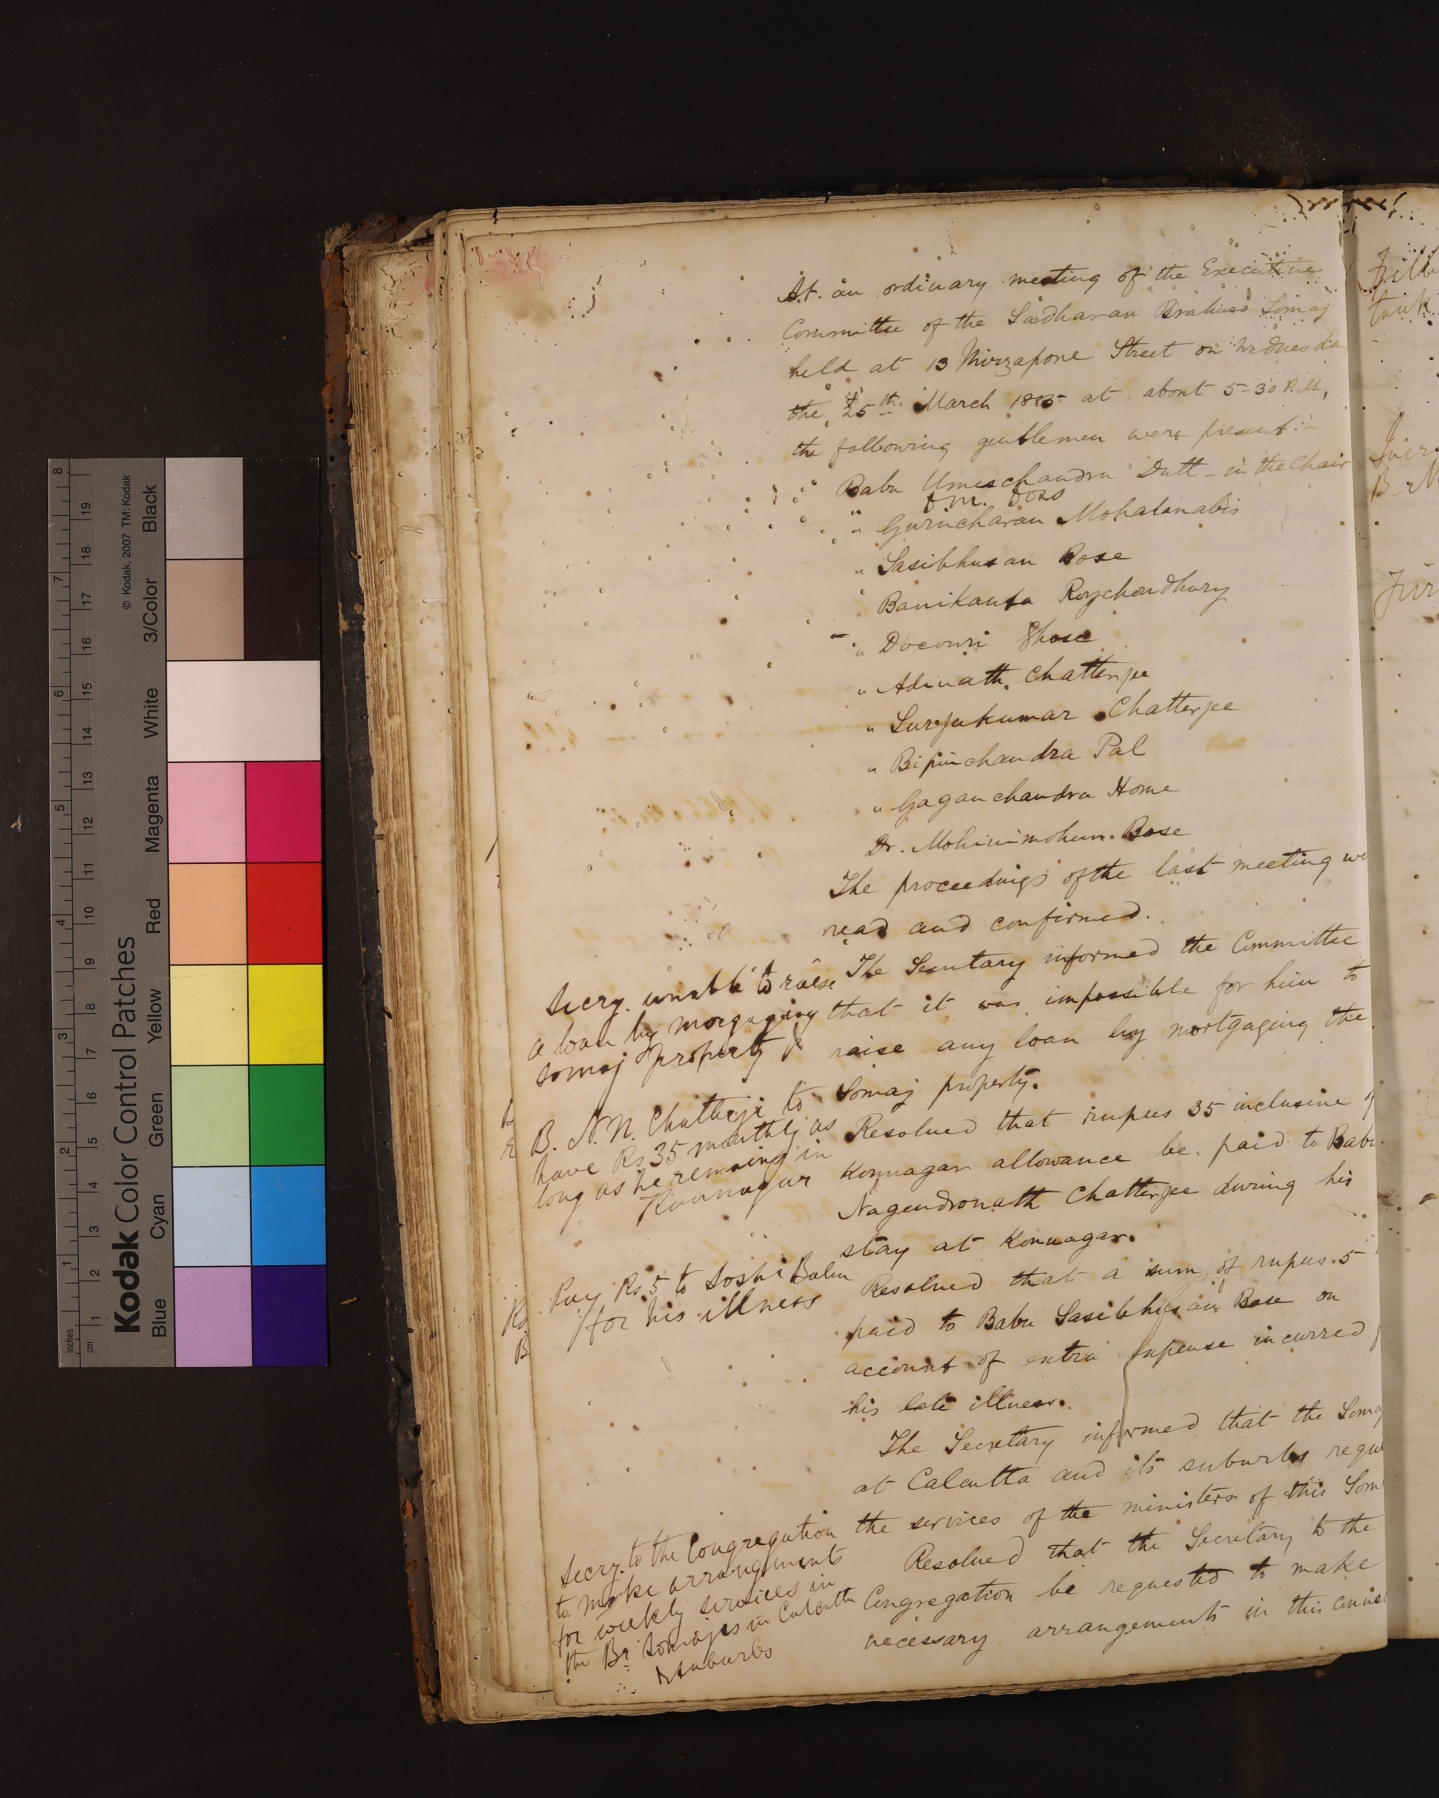 At an ordinary meeting of the Executive
Committee of the Sadharan Brahmo Somaj
held at 13 Mirzapore Street on Wednesday
the 25th March 1885 at about 5-30 P.M,
the following gentlemen were present:-
Babu Umeschandra Dutt - in the Chair
" Gurucharan Mohalanabis
" Sasibhusan Bose
" Banikanta Roychoudhury
" Docowri Ghose
" Adinath Chatterjee
" Surjakumar Chatterjee
" Bipinchandra Pal
" Gaganchandra Home
Dr. Mohinimohun Bose
The proceedings of the last meeting we
read and confirmed.
Secry. unable to raise
a loan by morgaging
somaj property
The Secretary informed the Committee
that it was impossible for him to
raise any loan by mortgaging the
Somaj property.
B. N. N. Chatterji to
have Rs 35 monthly as
long as he remains in
Konnagur
Resolved that rupees 35 inclusive of
Konnagar allowance be paid to Babu
Nagendronath Chatterjee during his
stay at Konnagar.
Pay Rs 5 to Soshi Babu
for his illness
Resolved that a sum of rupees 5
paid to Babu Sasibhusan Bose on
account of extra expense incurred
his late illness.
The Secretary informed that the Somaj
at Calcutta and its suburbs requ
the services of the ministers of this Som
Secry. to the Congregation
to make arrangements
for weekly services in
the Br. Somajes in Calcutta
& suburbs
Resolved that the Secretary to the
Congregation be requested to make
necessary arrangements in this connec
Kodak Color Control Patches
© Kodak, 2007 TM: Kodak
Blue Cyan Green Yellow Red Magenta White 3/Color Black
inches 1 2 3 4 5 6 7 8
cm 1 2 3 4 5 6 7 8 9 10 11 12 13 14 15 16 17 18 19